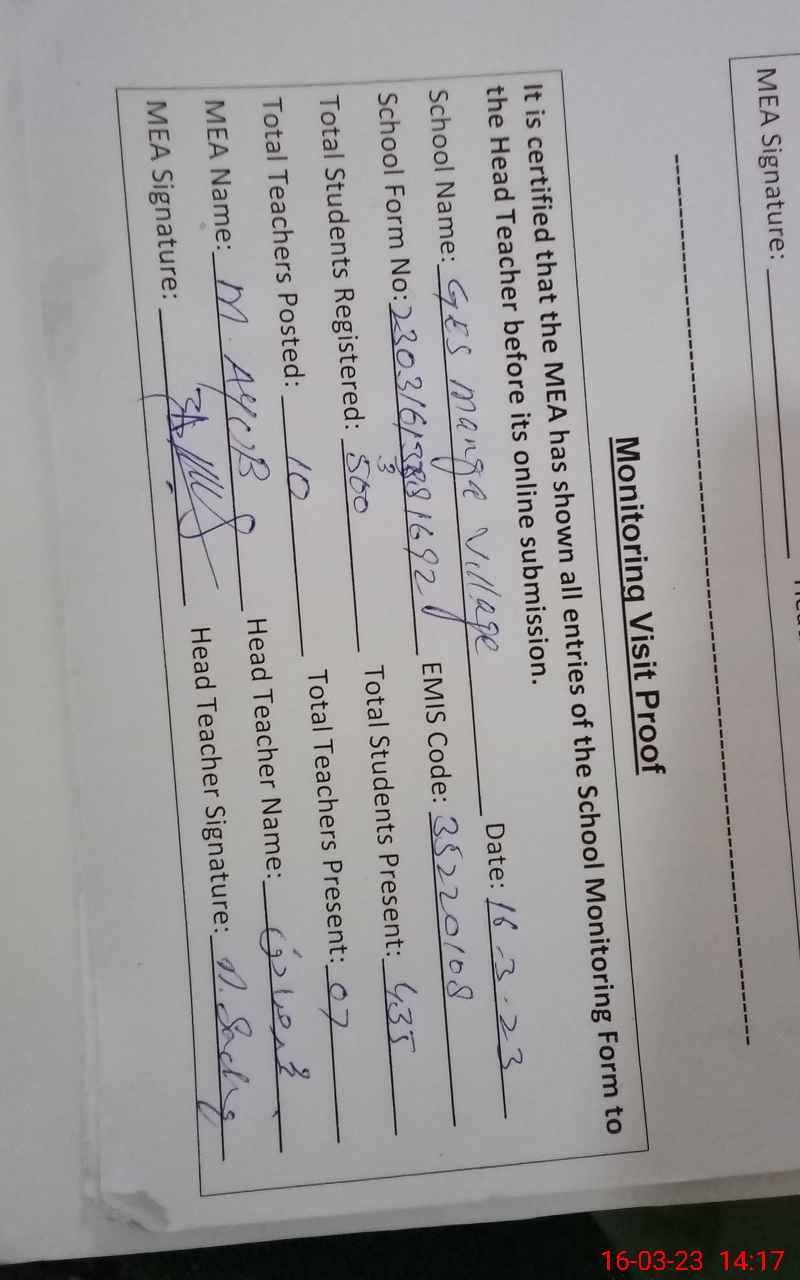 MEA Signature:
Monitoring Visit Proof
It is certified that the MEA has shown all entries of the School Monitoring Form to
the Head Teacher before its online submission.
School Name: GES Manga Village Date: 16-3-23
School Form No: EMIS Code: 35220108
Total Students Registered: 500 Total Students Present: 435
Total Teachers Posted: 10 Total Teachers Present: 07
MEA Name: M. Ayub Head Teacher Name:
MEA Signature: Head Teacher Signature:
16-03-23 14:17